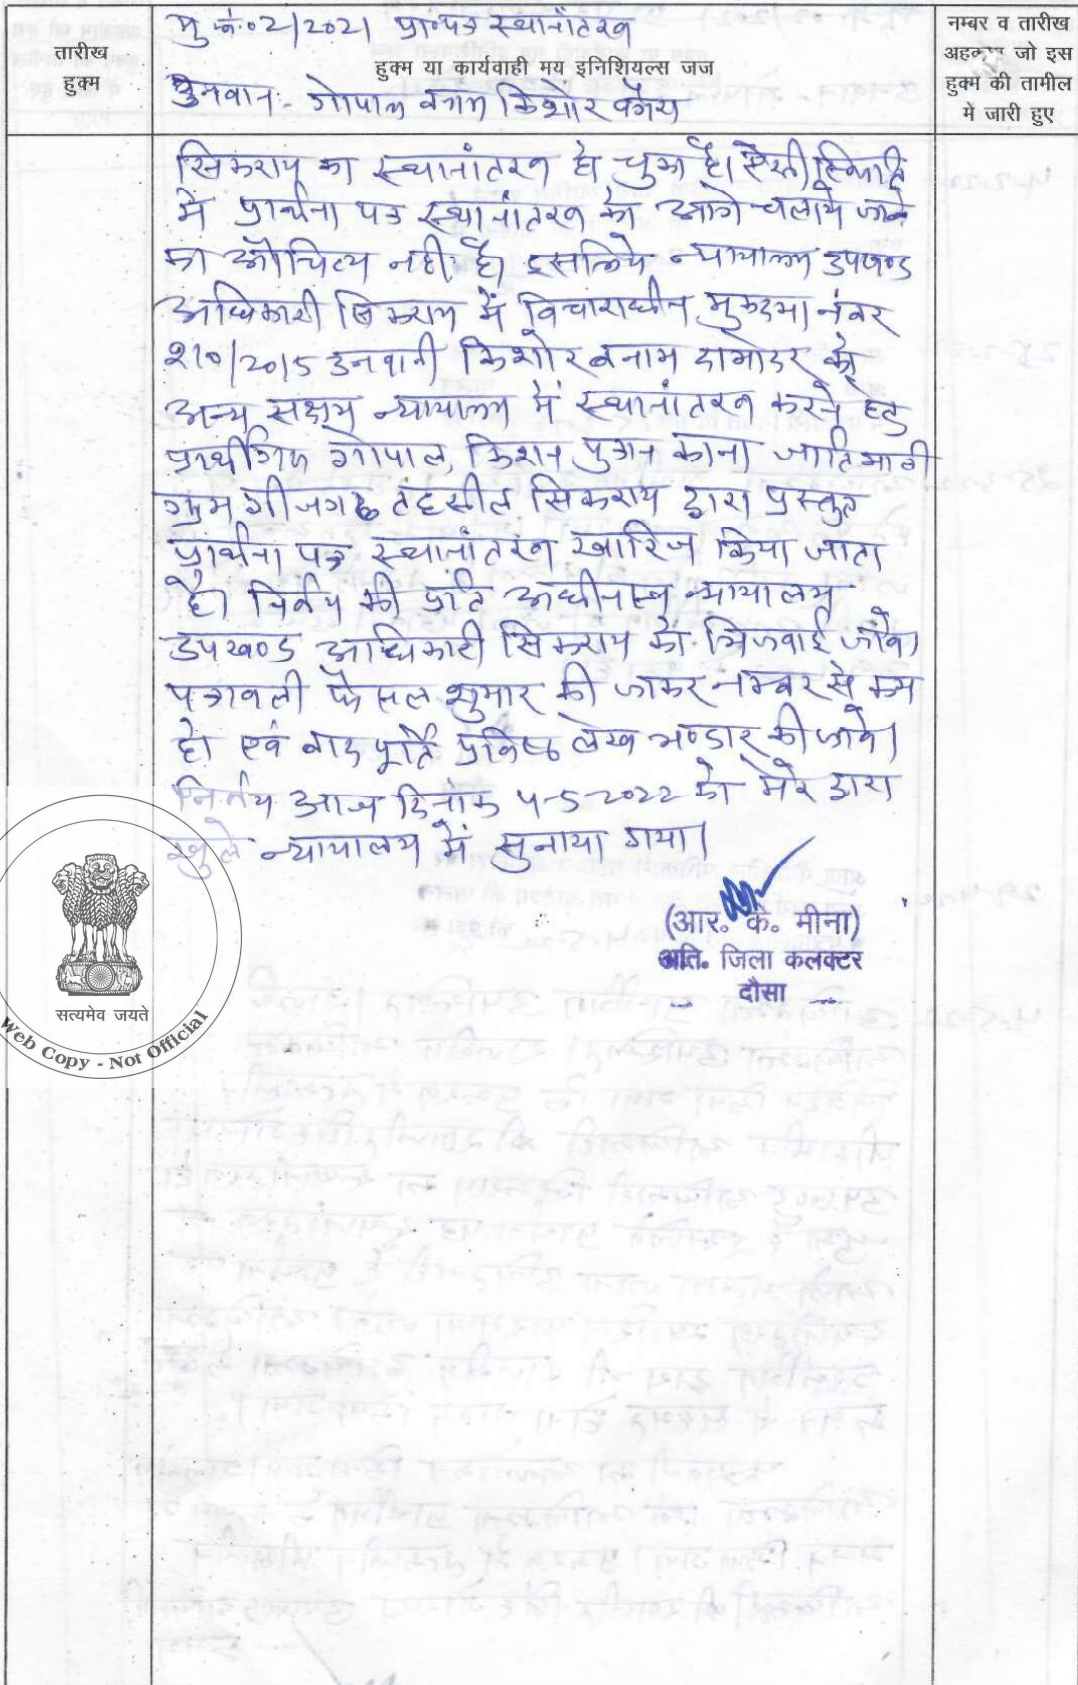 मु.नं. 02/2021 प्रा०पत्र स्थानांतरण
तारीख
हुक्म
हुक्म या कार्यवाही मय इनिशियल्स जज
उनवान:- गोपाल बनाम किशोर वगैरा
नम्बर व तारीख
अहकाम जो इस
हुक्म की तामील
मे जारी हुए
सिकराय का स्थानांतरण हो चुका है। ऐसी स्थिति
में प्रार्थना पत्र स्थानांतरण को आगे चलाये जाने
का औचित्य नही है। इसलिये न्यायालय उपखण्ड
अधिकारी सिकराय में विचाराधीन मुकदमा नंबर
210/2015 उनवानी किशोर बनाम दामोदर को
अन्य सक्षम न्यायालय में स्थानांतरण करने हेतु
प्रार्थीगण गोपाल, किशन पुत्रान काना जाति माली
ग्राम गीजगढ तहसील सिकराय द्वारा प्रस्तुत
प्रार्थना पत्र स्थानांतरण खारिज किया जाता
है। निर्णय की प्रति अधीनस्थ न्यायालय
उपखण्ड अधिकारी सिकराय को भिजवाई जावे।
पत्रावली फैसल शुमार की जाकर नम्बर से कम
हो एवं बाद पूर्ति प्रविष्ठ लेख भण्डार की जावे।
निर्णय आज दिनांक 4-5-2022 को मेरे द्वारा
खुले न्यायालय में सुनाया गया।
(आर. के. मीना)
अति. जिला कलक्टर
दौसा
सत्यमेव जयते
Web Copy - Not Official